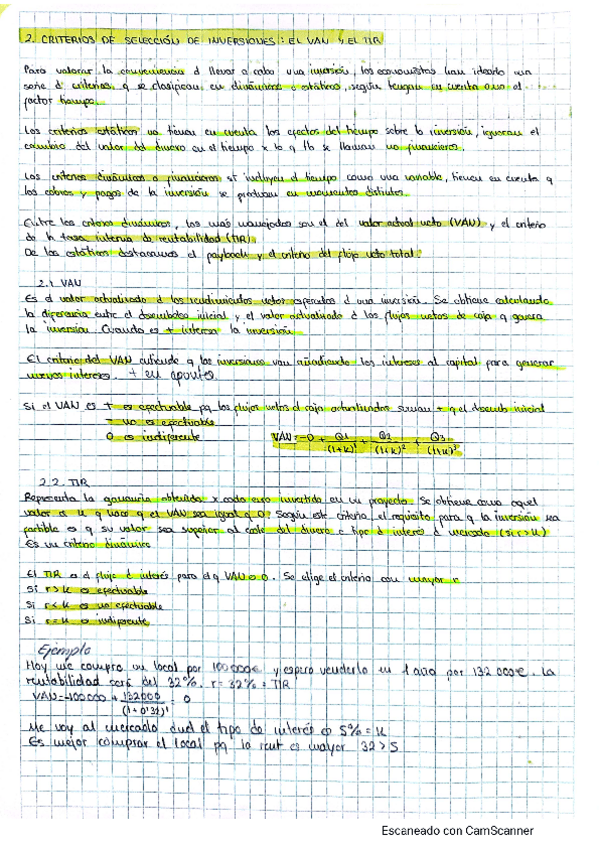 2. CRITERIOS DE SELECCIÓN DE INVERSIONES: EL VAN Y EL TIR
Para valorar la conveniencia d llevar a cabo una inversión, los economistas han ideado una
serie d criterios q se clasifican en dinámicos o estáticos, según tengan en cuenta o no el
factor tiempo.
Los criterios estáticos no tienen en cuenta los efectos del tiempo sobre la inversión, ignoran el
cambio del valor del dinero en el tiempo x lo q tb se llaman no financieros.
Los criterios dinámicos o financieros sí incluyen el tiempo como una variable, tienen en cuenta q
los cobros y pagos de la inversión se producen en momentos distintos.
Entre los criterios dinámicos, los más manejados son el del valor actual neto (VAN) y el criterio
de la tasa interna de rentabilidad (TIR)
De los estáticos destacamos el payback y el criterio del flujo neto total.
2.1 VAN
Es el valor actualizado d los rendimientos netos esperados d una inversión. Se obtiene calculando
la diferencia entre el desembolso inicial y el valor actualizado d los flujos netos de caja q genera
la inversión. Cuando es + interesa la inversión
El criterio del VAN entiende q los inversores van añadiendo los intereses al capital para generar
nuevos intereses. + en apuntes.
Si el VAN es + es efectuable pq los flujos netos d caja actualizados suman + q el desemb inicial
- no es efectuable
0 es indiferente
VAN = -D + Q1/(1+k)¹ + Q2/(1+k)² + Q3/(1+k)³
2.2. TIR
Representa la ganancia obtenida x cada euro invertido en un proyecto. Se obtiene como aquel
valor d k q hace q el VAN sea igual q 0. Según este criterio, el requisito para q la inversión sea
factible es q su valor sea superior al coste del dinero o tipo d interés d mercado (si r>k)
Es un criterio dinámico
El TIR es d flujo d interés para el q VAN es 0. Se elige el criterio con mayor r
Si r>k es efectuable
Si r<k es no efectuable
Si r=k es indiferente
Ejemplo
Hoy me compro un local por 100000€ y espero venderlo en 1 año por 132 000€. La
rentabilidad será del 32%. r = 32% = TIR
VAN=-100000 + 132000/(1+0'32)¹ = 0
Me voy al mercado dnd el tipo de interés es 5% = k
Es mejor comprar el local pq la rent es mayor 32>5
Escaneado con CamScanner